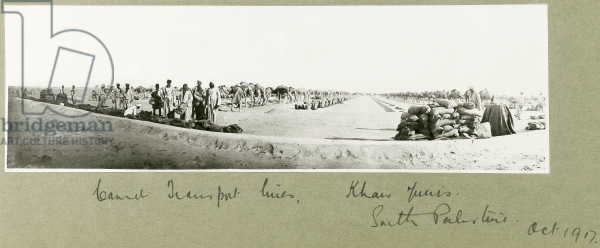 bridgeman
images
Camel Transport lines, Khan Yunis.
South Palestine.
Oct. 1917.